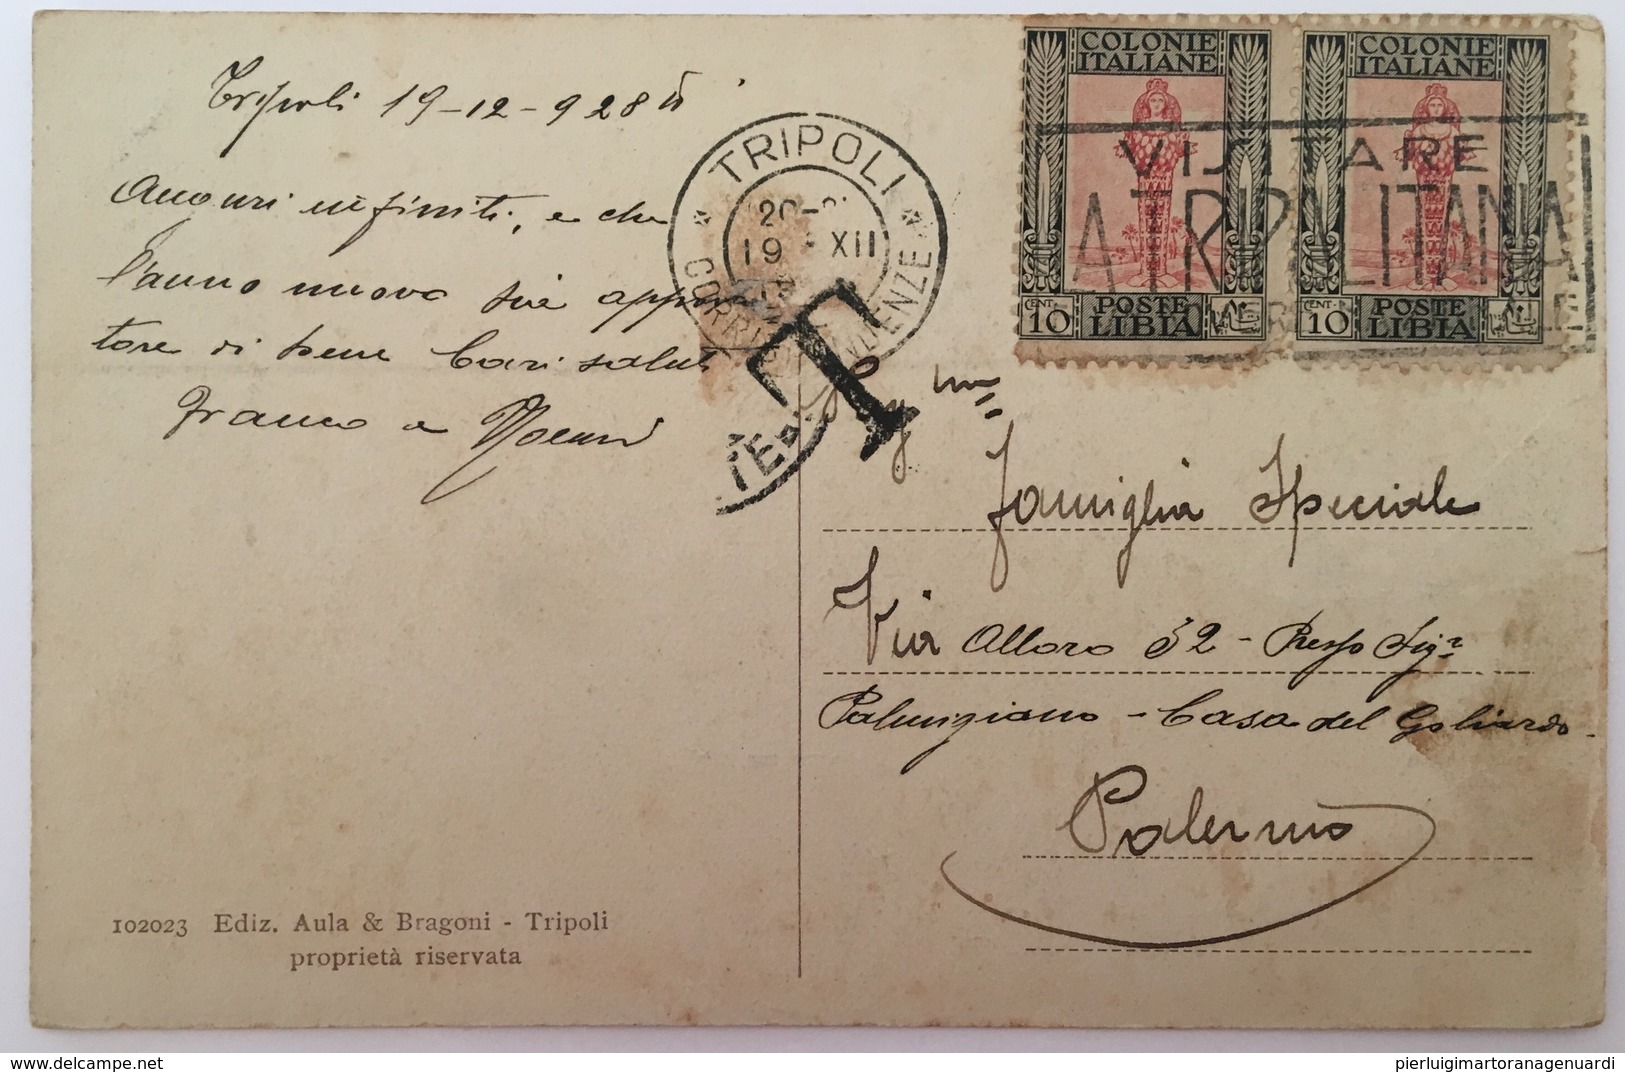 Tripoli 19-12-928
Auguri infiniti, e che
l'anno nuovo sia appor
tore di bene Cari saluti
Franco e
102023 Ediz. Aula & Bragoni - Tripoli
proprietà riservata
TRIPOLI
CORRISPONDENZE
19 XII
T
COLONIE
ITALIANE
CENT.
10
POSTE
LIBIA
COLONIE
ITALIANE
CENT.
10
POSTE
LIBIA
VISITARE
LA TRIPOLITANIA
Famiglia Speciale
Via Alloro 52 - Presso Sigr
Palmigiano - Casa del Goliardo
Palermo
delcampe.net
pierluigimartoranagenuardi